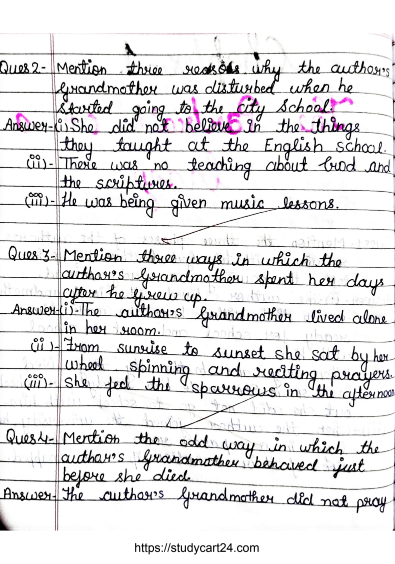 Ques 2- Mention three reasons why the author's
Grandmother was disturbed when he
started going to the City School.
Answer-(i) She did not believe in the things
they taught at the English school.
(ii)- There was no teaching about God and
the scriptures.
(iii)- He was being given music lessons.
Ques 3- Mention three ways in which the
author's Grandmother spent her days
after he grew up.
Answer-(i)- The author's Grandmother lived alone
in her room.
(ii)- From sunrise to sunset she sat by her
wheel spinning and reciting prayers.
(iii)- She fed the sparrows in the afternoon
Ques 4- Mention the odd way in which the
author's Grandmother behaved just
before she died
Answer- The author's Grandmother did not pray
https://studycart24.com